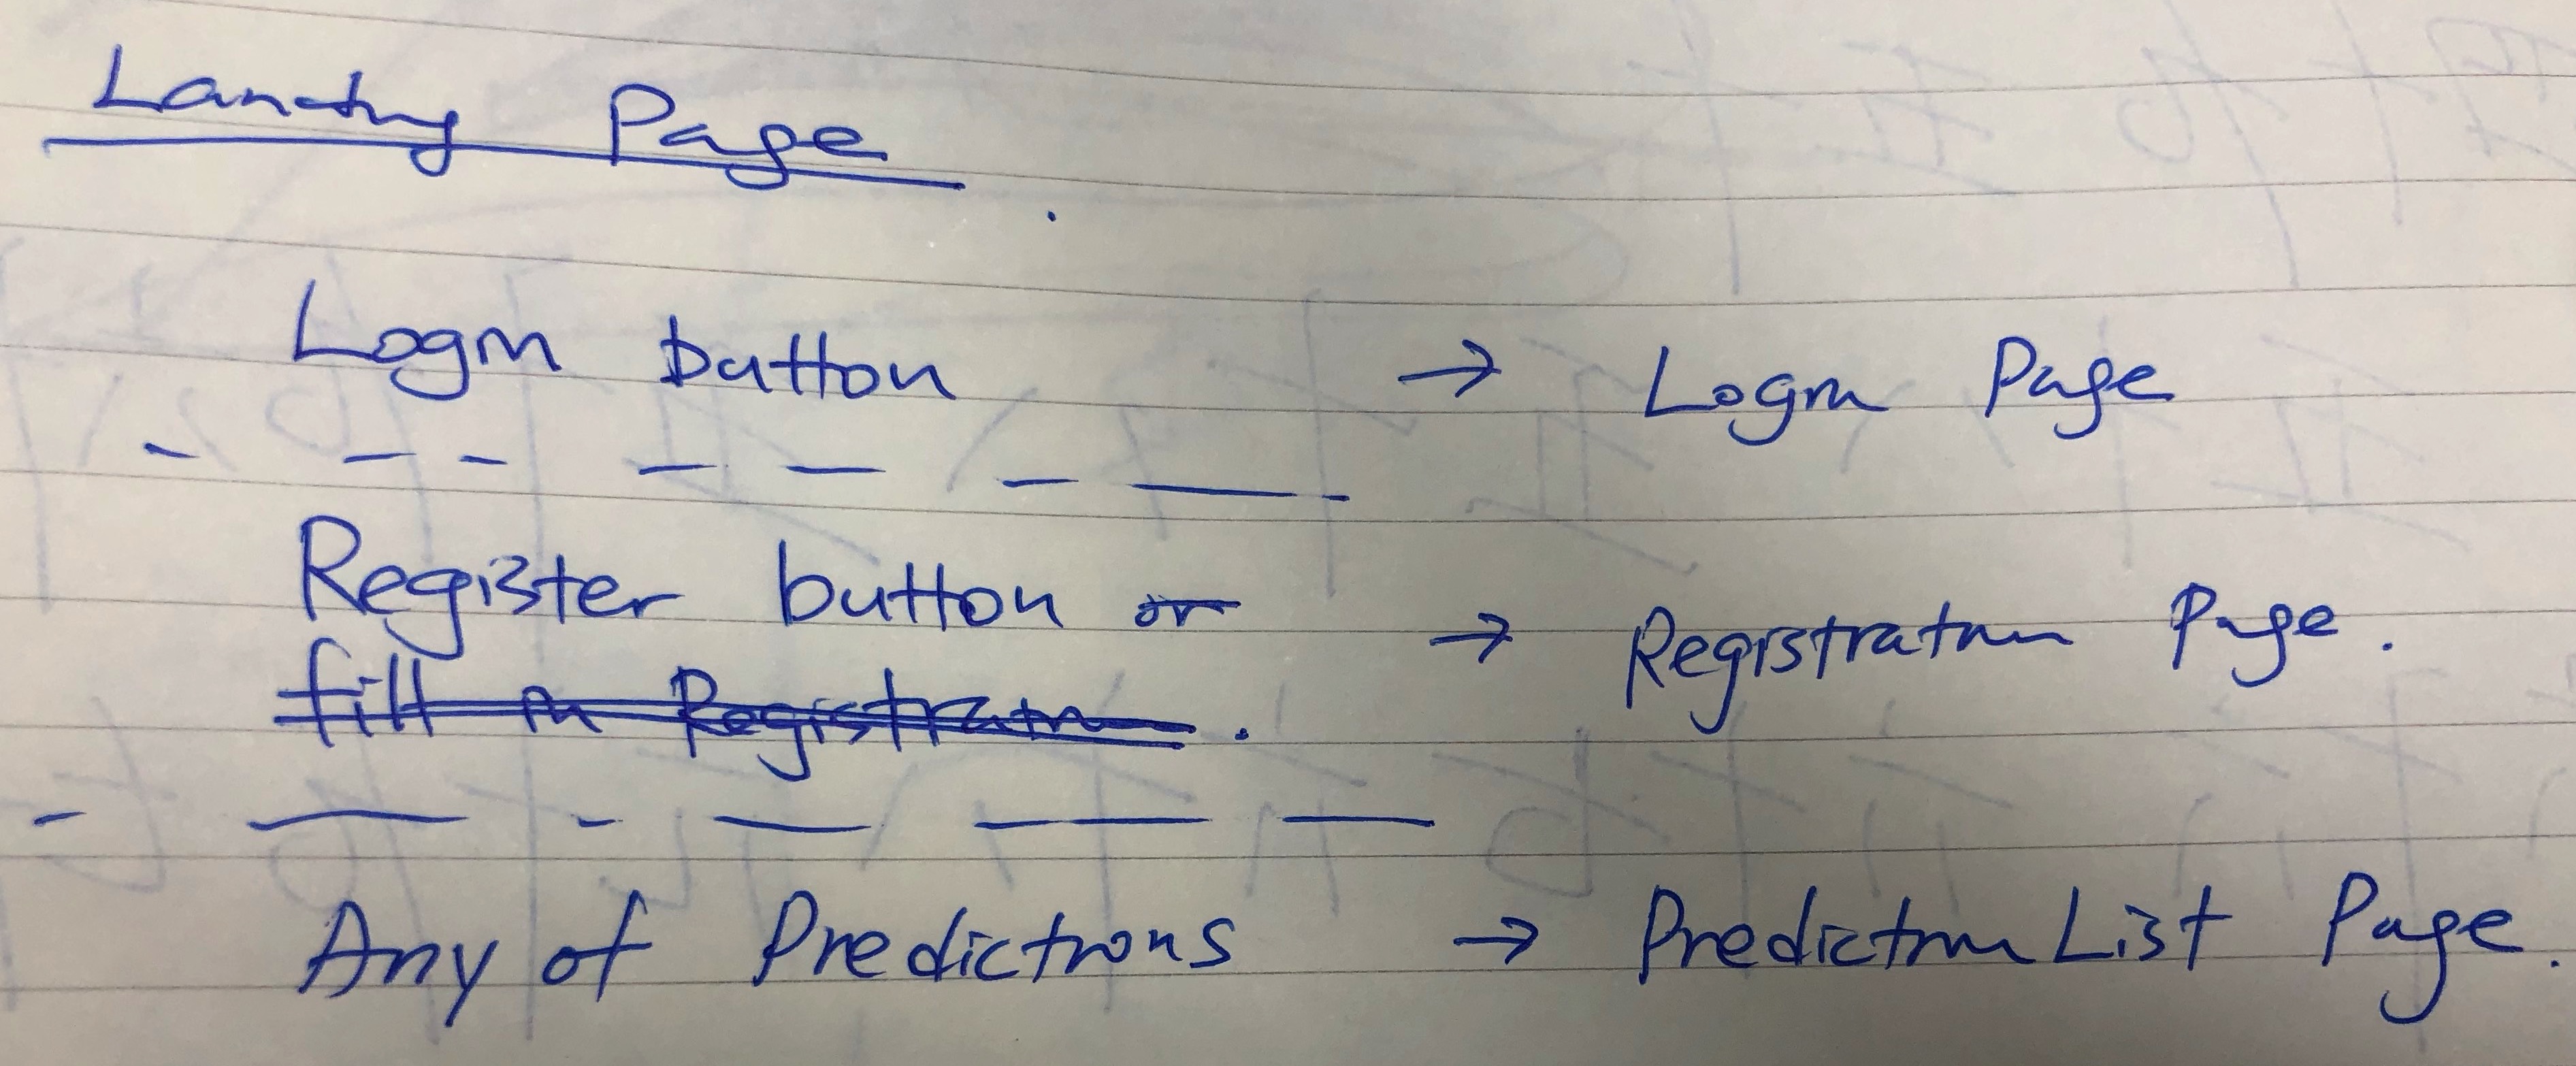 Landing Page
Login button → Login Page
Register button or → Registration Page.
fill in Registration.
Any of Predictions → Prediction List Page.